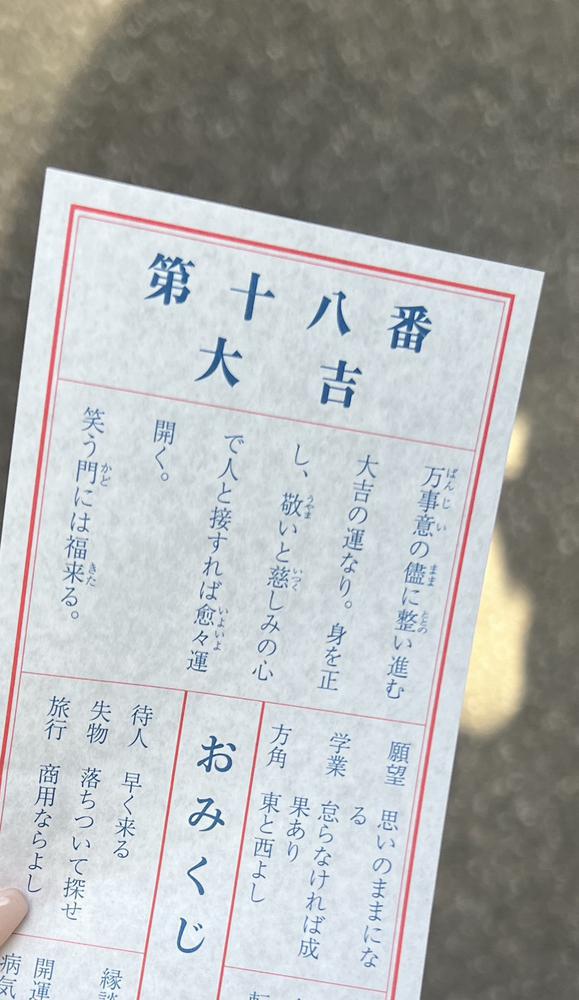 第十八番
大吉
万事意の儘に整い進む
大吉の運なり。身を正
し、敬いと慈しみの心
で人と接すれば愈々運
開く。
笑う門には福来る。
願望 思いのままにな
る
学業 怠らなければ成
果あり
方角 東と西よし
おみくじ
待人 早く来る
失物 落ちついて探せ
旅行 商用ならよし
縁談
開運
病気